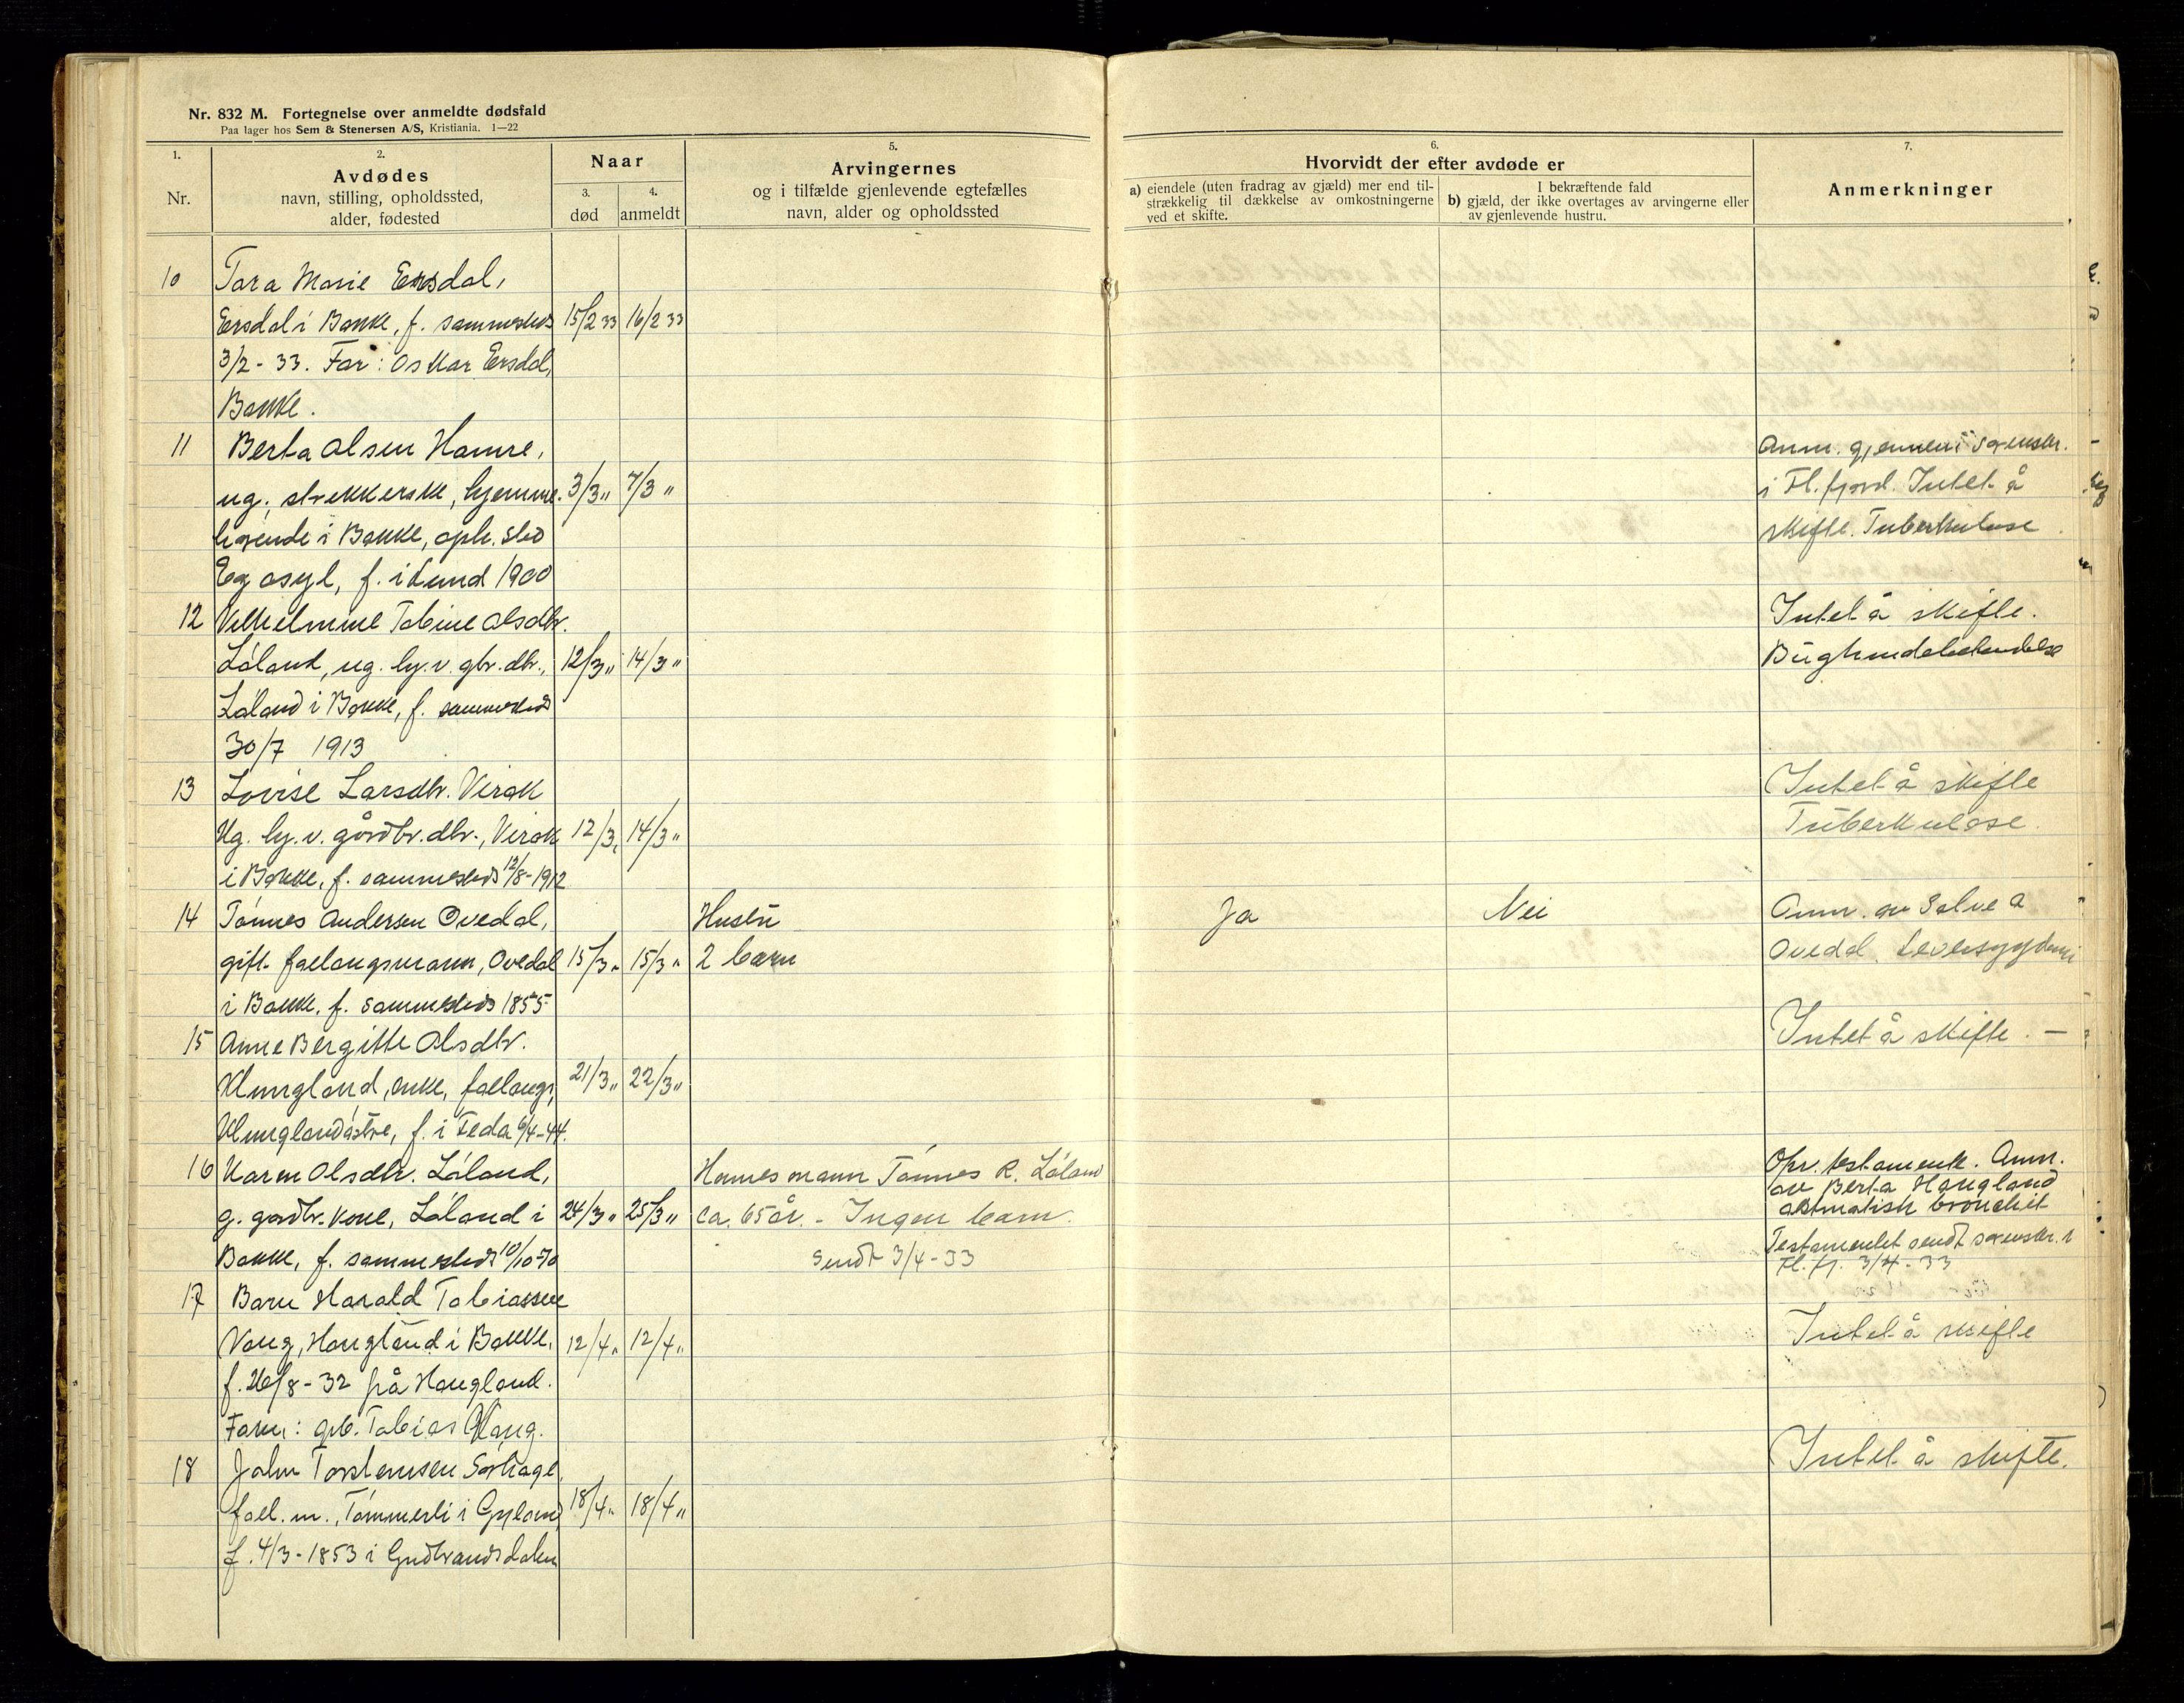 Nr. 832 M. Fortegnelse over anmeldte dødsfald
Paa lager hos Sem & Stenersen A/S, Kristiania. 1—22
1.
Nr.
2.
Avdødes
navn, stilling, opholdssted,
alder, fødested
Naar
3.
død
4.
anmeldt
5.
Arvingernes
og i tilfælde gjenlevende egtefælles
navn, alder og opholdssted
6.
Hvorvidt der efter avdøde er
a) eiendele (uten fradrag av gjæld) mer end til-
strækkelig til dækkelse av omkostningerne
ved et skifte.
I bekræftende fald
b) gjæld, der ikke overtages av arvingerne eller
av gjenlevende hustru.
7.
Anmerkninger
10 Tora Marie Eersdal,
Eersdal i Bakke, f. sammesteds 15/2 33 16/2 33
3/2 - 33. Far: Oskar Eersdal,
Bakke.
11 Berta Olsen Hamre, Anm. gjennem sorenskr.
ug. strikkerske, hjemme- 3/3 " 7/3 " i Fl. fjord. Intet å
hørende i Bakke, oph. sted skifte. Tuberkulose
Eg asyl, f. i Lund 1900
12 Vilhelmine Tobine Olsdtr. Intet å skifte.
Låland, ug. hj. v. gbr. dtr., 12/3 " 14/3 " Bughindebetendelse
Låland i Bakke, f. sammesteds
30/7 1913
13 Lovise Larsdtr. Virak Intet å skifte
Ug. hj. v. gårdbr. dtr., Virak 12/3 " 14/3 " Tuberkulose.
i Bakke, f. sammesteds 12/8 - 1912
14 Tønnes Andersen Ovedal, Hustru Ja Nei Anm. av Salve A
gift faelaugsmann, Ovedal 15/3 " 15/3 " 2 barn Ovedal. Leversygdom
i Bakke, f. sammesteds 1855
15 Anne Bergitte Olsdtr. Intet å skifte. —
Klungland, enke, faelaugs, 21/3 " 22/3 "
Klunglandåstre, f. i Feda 6/4 - 44.
16 Karen Olsdtr. Låland, Hennes mann Tønnes R. Låland Opr. testamente. Anm.
av Berta Haugland
g. gårdbr. kone, Låland i 24/3 " 25/3 " ca. 65 år. - Ingen barn. astmatisk bronchit
Bakke, f. sammesteds 10/10-70 Sendt 3/4 - 33 Testamentet sendt sorenskr. i
Fl. fj. 3/4 - 33
17 Barn Harald Tobiassen
Vang, Haugland i Bakke, 12/4 " 12/4 " Intet å skifte
f. 26/8 - 32 på Haugland.
Faren: grb. Tobias Vang.
18 John Torstensen Sørhage, Intet å skifte.
fael. m., Tømmerli i Gyland, 18/4 " 18/4 "
f. 4/3 - 1853 i Gudbrandsdalen